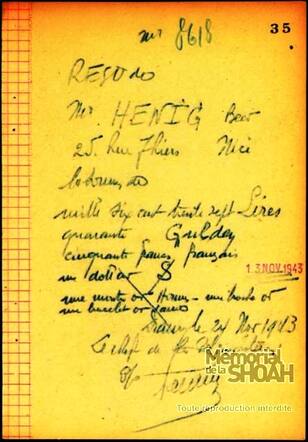 35
nr 8618
REÇU de
Mr HENIG Beer
25, Rue Thiers Nice
mille six cent trente sept Lires
quarante Gulden
cinquante francs français
un dollar $
13 NOV. 1943
une montre or Homme -
un bracelet or dame
le 24 Nov 1943
Le chef de
Mémorial
de la
SHOAH
Toute reproduction interdite